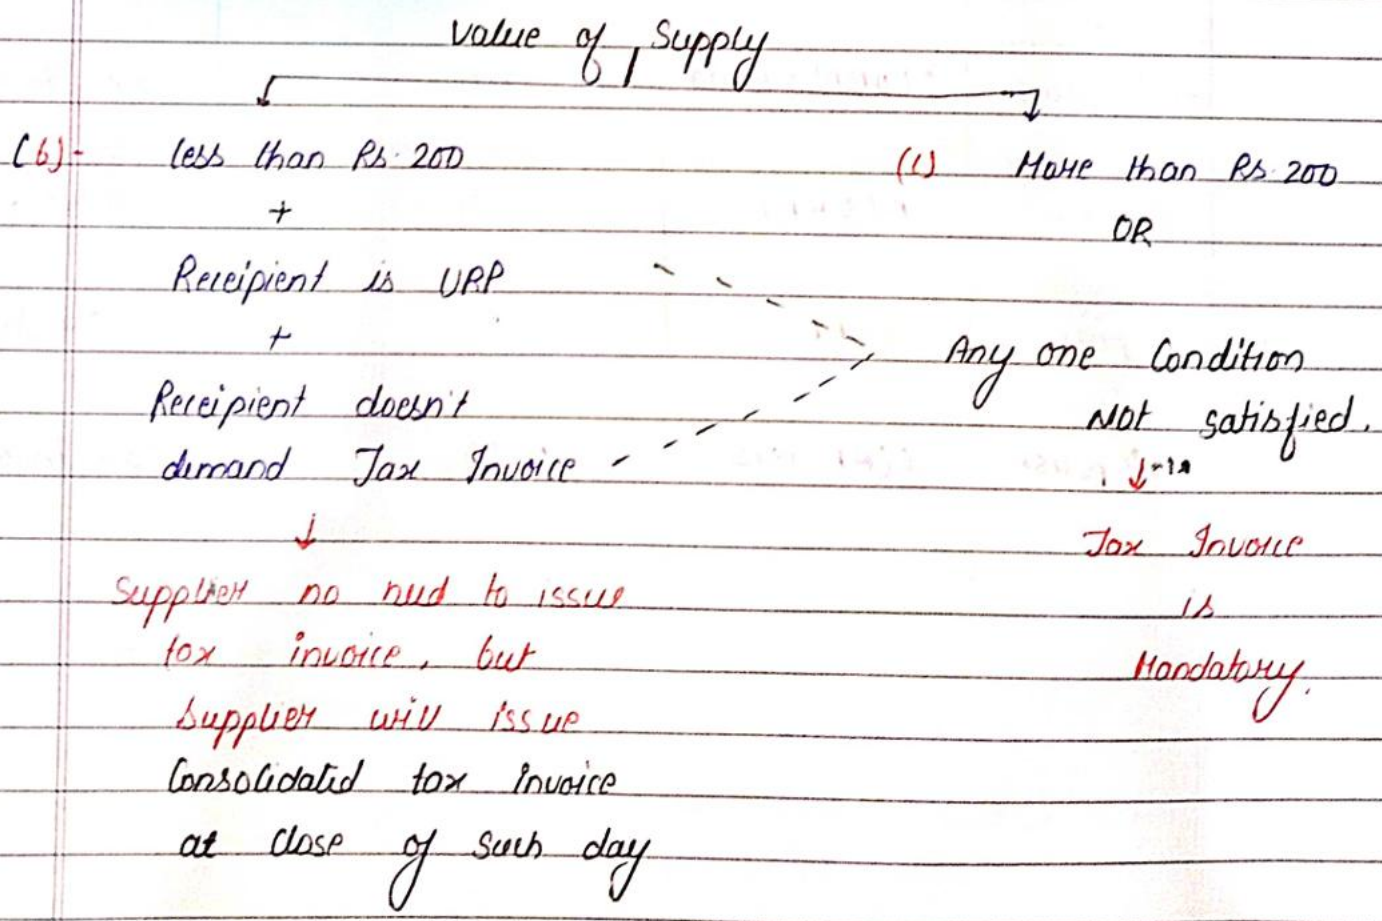 Value of Supply
(b)- less than Rs. 200
+
Receipient is URP
+
Receipient doesn't
demand Tax Invoice
↓
Supplier no need to issue
tax invoice, but
supplier will issue
Consolidated tax invoice
at close of such day
(c) More than Rs. 200
OR
Any one Condition
Not satisfied.
↓
Tax Invoice
is
Mandatory.